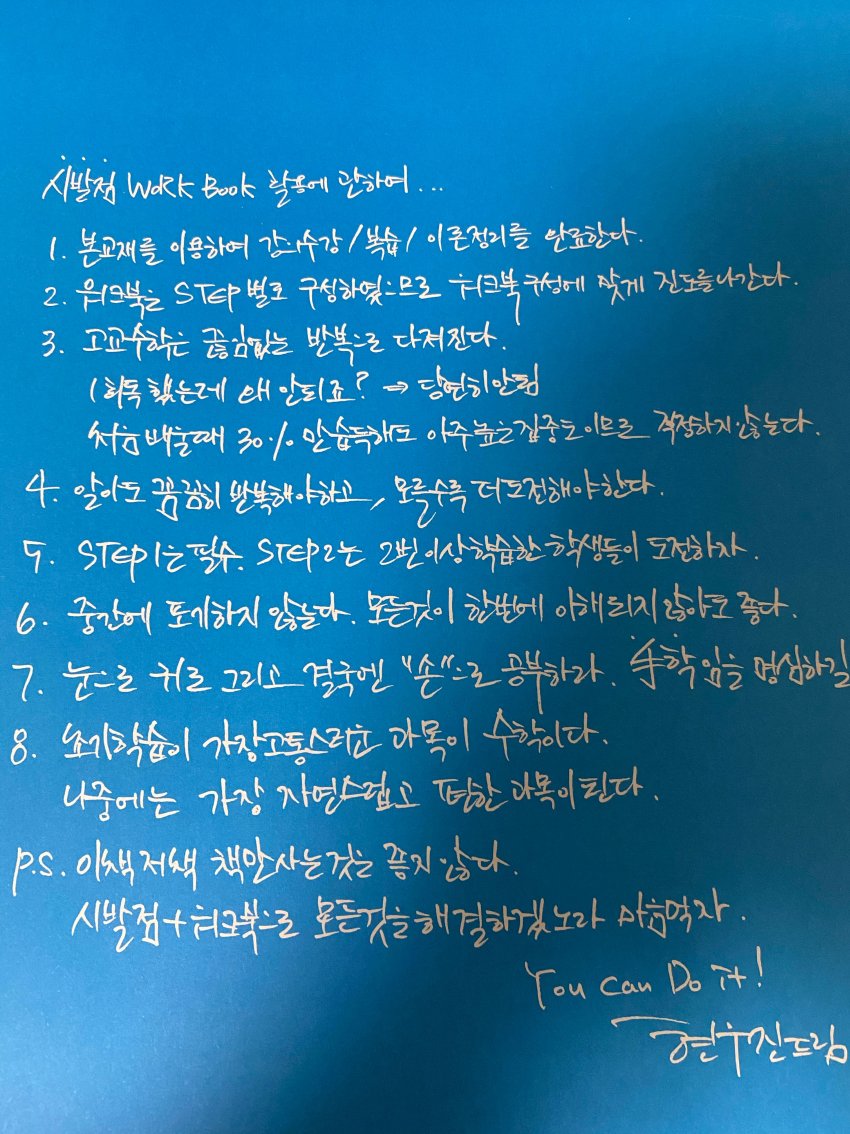 시발점 WORK BOOK 활용에 관하여...
1. 본교재를 이용하여 강의수강/복습/이론정리를 완료한다.
2. 워크북은 STEP별로 구성하였으므로 워크북구성에 맞게 진도를나간다.
3. 고교수학은 끊임없는 반복으로 다져진다.
1회독 했는데 왜 안되죠? → 당연히안됨
처음배울때 30% 만습득해도 아주높은집중도이므로 걱정하지않는다.
4. 알아도 꼼꼼히 반복해야하고, 모를수록 더도전해야한다.
5. STEP1는필수. STEP2는 2번이상학습한 학생들이 도전하자.
6. 중간에 포기하지 않는다. 모든것이 한번에 이해되지 않아도 좋다.
7. 눈으로 귀로 그리고 결국엔 "손"으로 공부하라. 手학임을 명심하길
8. 초기학습이 가장고통스러운 과목이 수학이다.
나중에는 가장 자연스럽고 편한 과목이된다.
p.s. 이책저책 책만사는것은 좋지 않다.
시발점+워크북으로 모든것을해결하겠노라 마음먹자.
You can Do it!
현우진드림